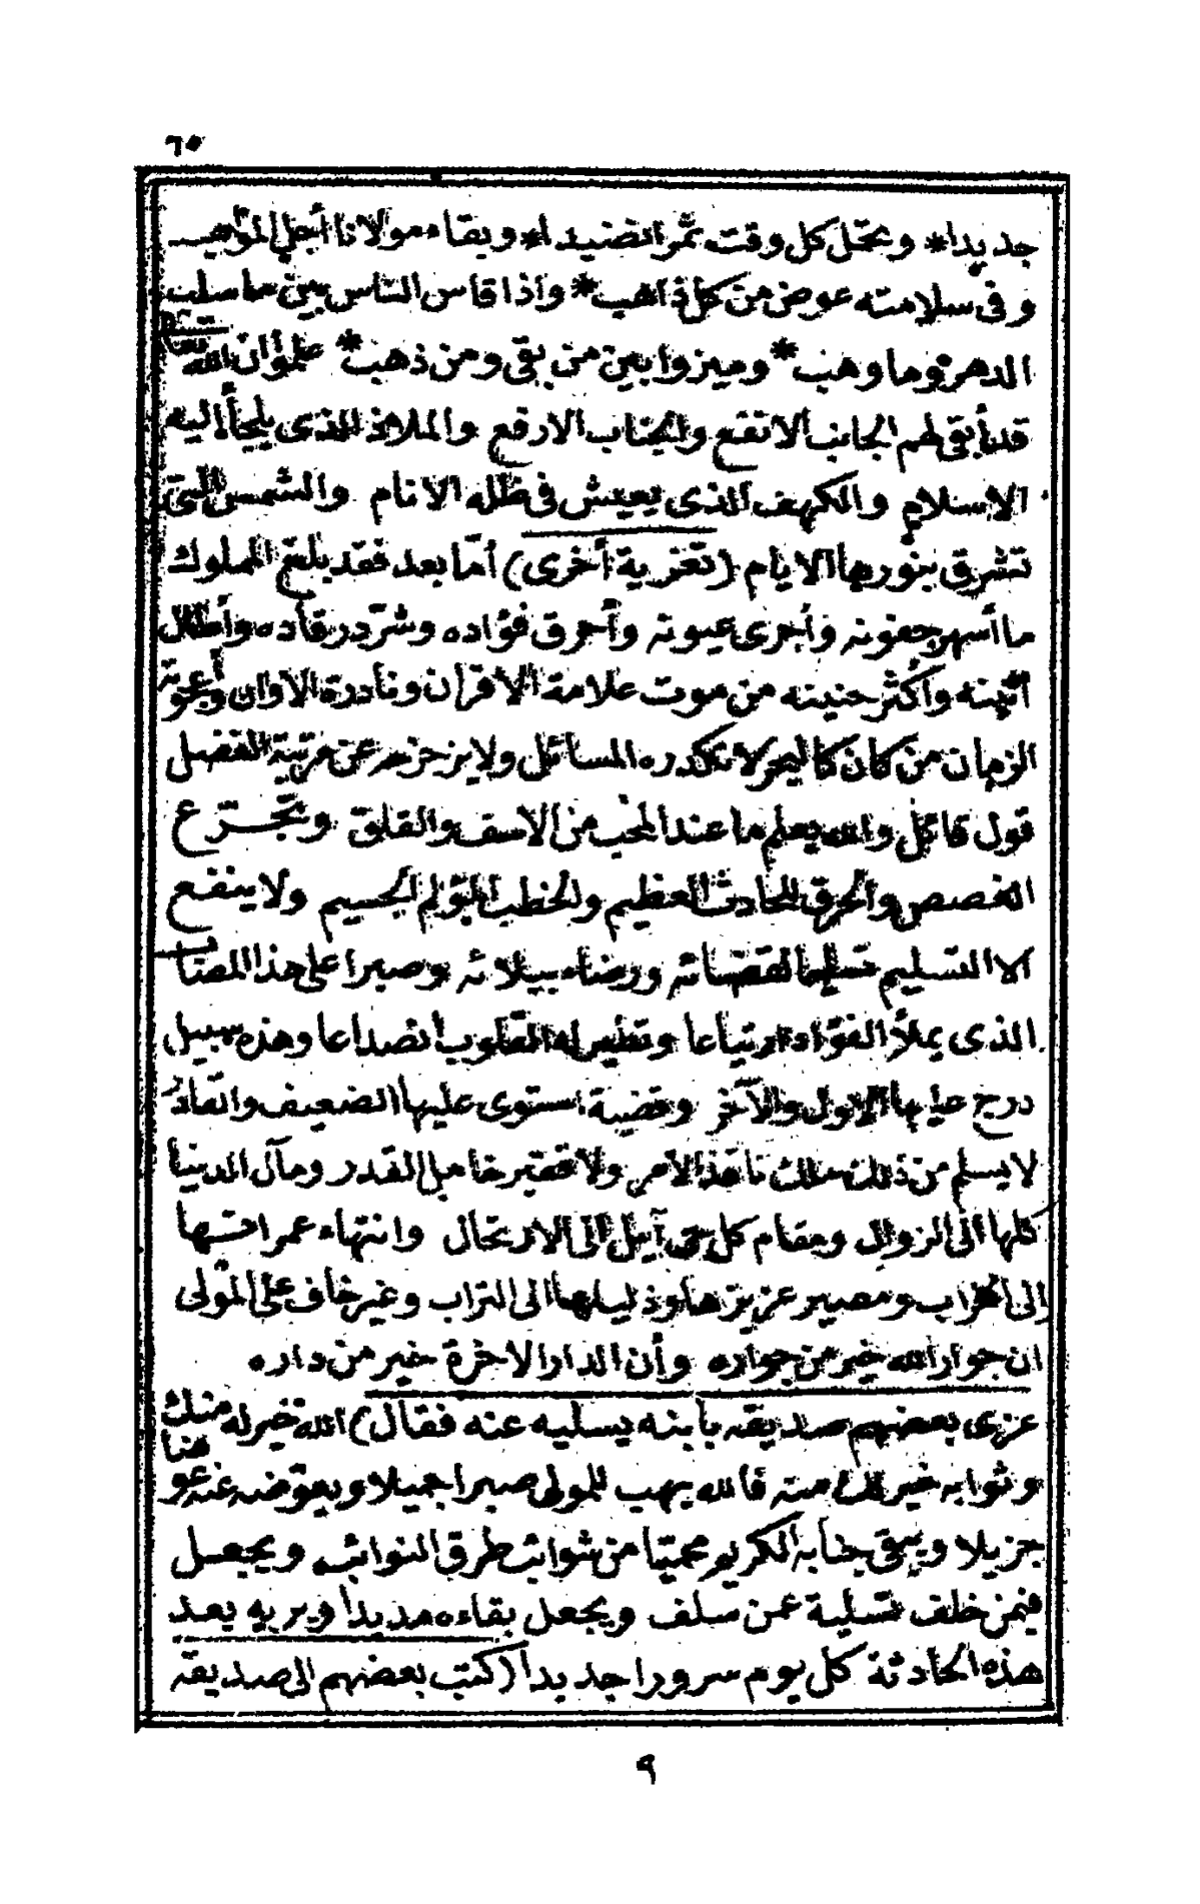 ٦٥
جديدا * وبحمل كل وقت ثمرا نضيدا * وبقاء مولانا أجل المواهب
وفى سلامته عوض من كل ذاهب * واذا قاس الناس بين ماسلب
الدهر وما وهب * وميزوا بين من بقى ومن ذهب * علموا أن الله تعالى
قد أبقى لهم الجانب الانفع والجناب الارفع والملاذ الذى يلجأ اليه
الاسلام والكهف الذى يعيش فى ظله الانام والشمس التى
تشرق بنورها الايام (تعزية أخرى) أما بعد فقد بلغ المملوك
ما أسهر جفونه وأجرى عيونه وأحرق فؤاده وشرد رقاده وأطال
أنينه وأكثر حنينه من موت علامة الاقران ونادرة الاوان وأعجوبة
الزمان من كان كالبحر لا تكدره المسائل ولا يزحزحه عن مرتبة الفضل
قول قائل والله يعلم ما عند المحب من الاسف والقلق وتجرع
الغصص والحرق للحادث العظيم والخطب المؤلم الجسيم ولا ينفع
الا التسليم تسليما لقضائه ورضاء ببلائه وصبرا على هذا المصاب
الذى يملأ الفؤاد ارتياعا وتطير له القلوب انصداعا وهذه سبيل
درج عليها الاول والآخر وقضية استوى عليها الضعيف والقادر
لا يسلم من ذلك ملك نافذ الامر ولا فقير خامل القدر ومآل الدنيا
كلها الى الزوال ومقام كل حى آيل الى الارتحال وانتهاء عمرانها
الى الخراب ومصير عزيزها وذليلها الى التراب وغير خاف على المولى
ان جوار الله خير من جواره وأن الدار الاخرة خير من داره
عزى بعضهم صديقه بابنه يسليه عنه فقال) الله خير له منك
وثوابه خير لك منه فالله يهب للمولى صبرا جميلا ويعوضه عنه عوضا
جزيلا ويبقى جنابه الكريم محميا من شوائب طرق النوائب ويجعل
فيمن خلف تسلية عمن سلف ويجعل بقاءه مديدا ويريه بعد
هذه الحادثة كل يوم سرورا جديدا (كتب بعضهم الى صديقه
٩